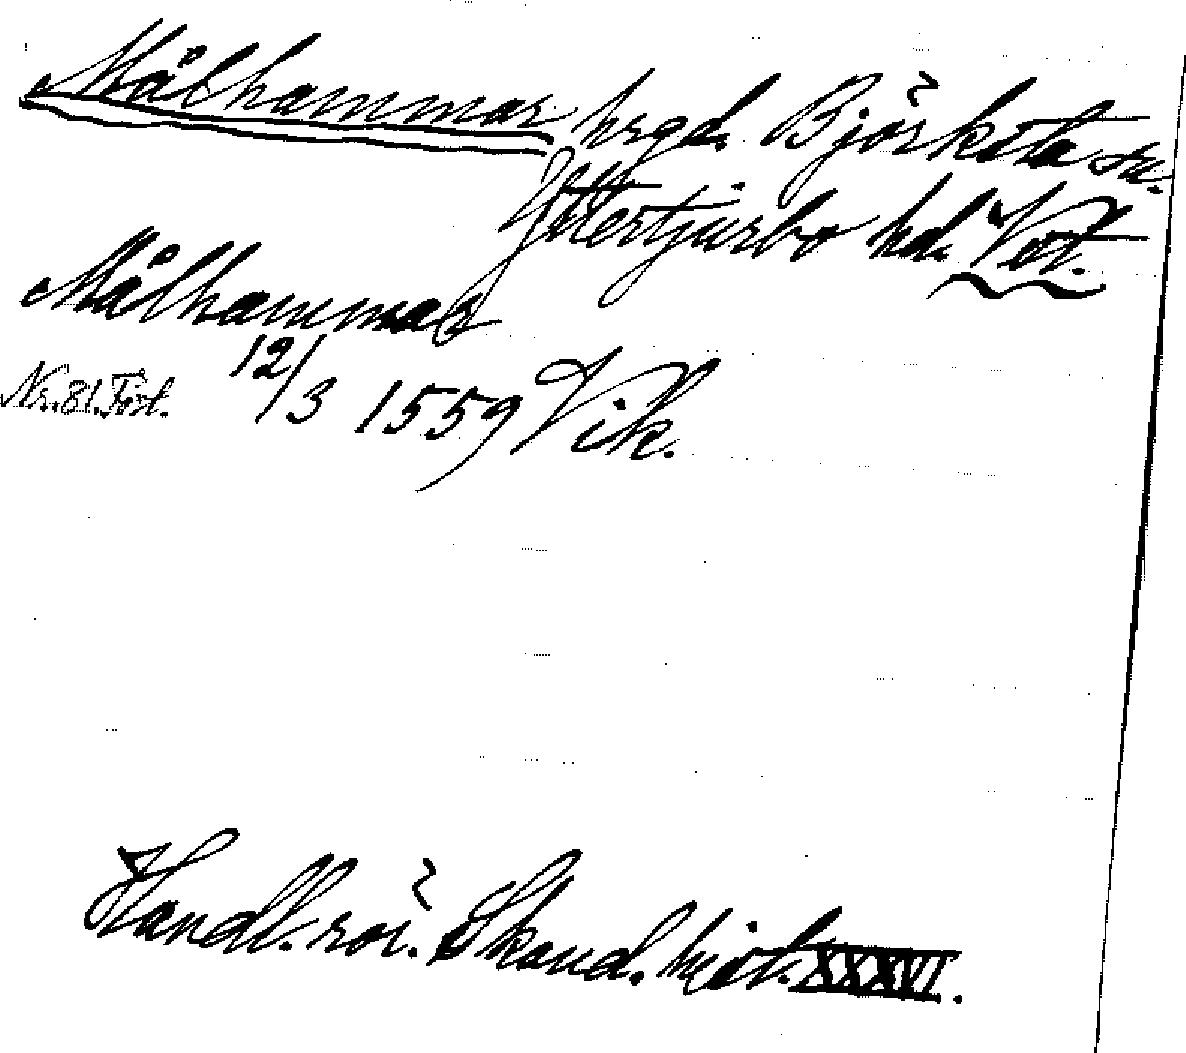 Målhammar hrgd. Björksta sn.
Yttertjurbo hd. Vst.
Målhammar
Nr. 81. Förl. 12/3 1559 Vik.
Handl. rör. Skand. hist. XXXVI.